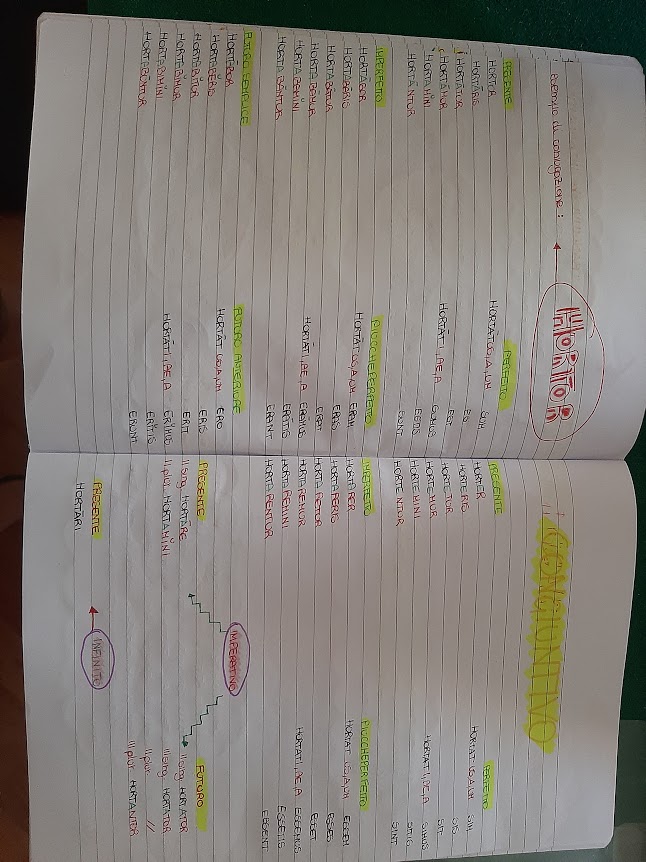 esempio di coniugazione:
HORTOR
PRESENTE
HORTOR
HORTĀRIS
HORTĀTUR
HORTĀMUR
HORTĀMĬNI
HORTĀNTUR
PERFETTO
HORTĀTUS,A,UM SUM
ES
EST
HORTĀTI,AE,A SUMUS
ESTIS
SUNT
IMPERFETTO
HORTĀBAR
HORTABĀRIS
HORTABĀTUR
HORTABĀMUR
HORTABĀMĬNI
HORTABĀNTUR
PIUCCHEPERFETTO
HORTĀTUS,A,UM ERAM
ERAS
ERAT
HORTĀTI,AE,A ERĀMUS
ERĀTIS
ERANT
FUTURO SEMPLICE
HORTĀBOR
HORTĀBERIS
HORTABĬTUR
HORTABĬMUR
HORTABIMĬNI
HORTABŬNTUR
FUTURO ANTERIORE
HORTĀTUS,A,UM ERO
ERIS
ERIT
HORTĀTI,AE,A ERĬMUS
ERĬTIS
ERUNT
CONGIUNTIVO
PRESENTE
HORTER
HORTERIS
HORTETUR
HORTEMUR
HORTEMINI
HORTENTUR
PERFETTO
HORTATUS,A,UM SIM
SIS
SIT
HORTATI,AE,A SIMUS
SITIS
SINT
IMPERFETTO
HORTARER
HORTARERIS
HORTARETUR
HORTAREMUR
HORTAREMINI
HORTARENTUR
PIUCCHEPERFETTO
HORTATUS,A,UM ESSEM
ESSES
ESSET
HORTATI,AE,A ESSEMUS
ESSETIS
ESSENT
IMPERATIVO
PRESENTE
II sing HORTĀRE
II plur HORTAMĬNI
FUTURO
II sing HORTATOR
III sing HORTATOR
II plur //
III plur HORTANTOR
INFINITO
PRESENTE
HORTARI